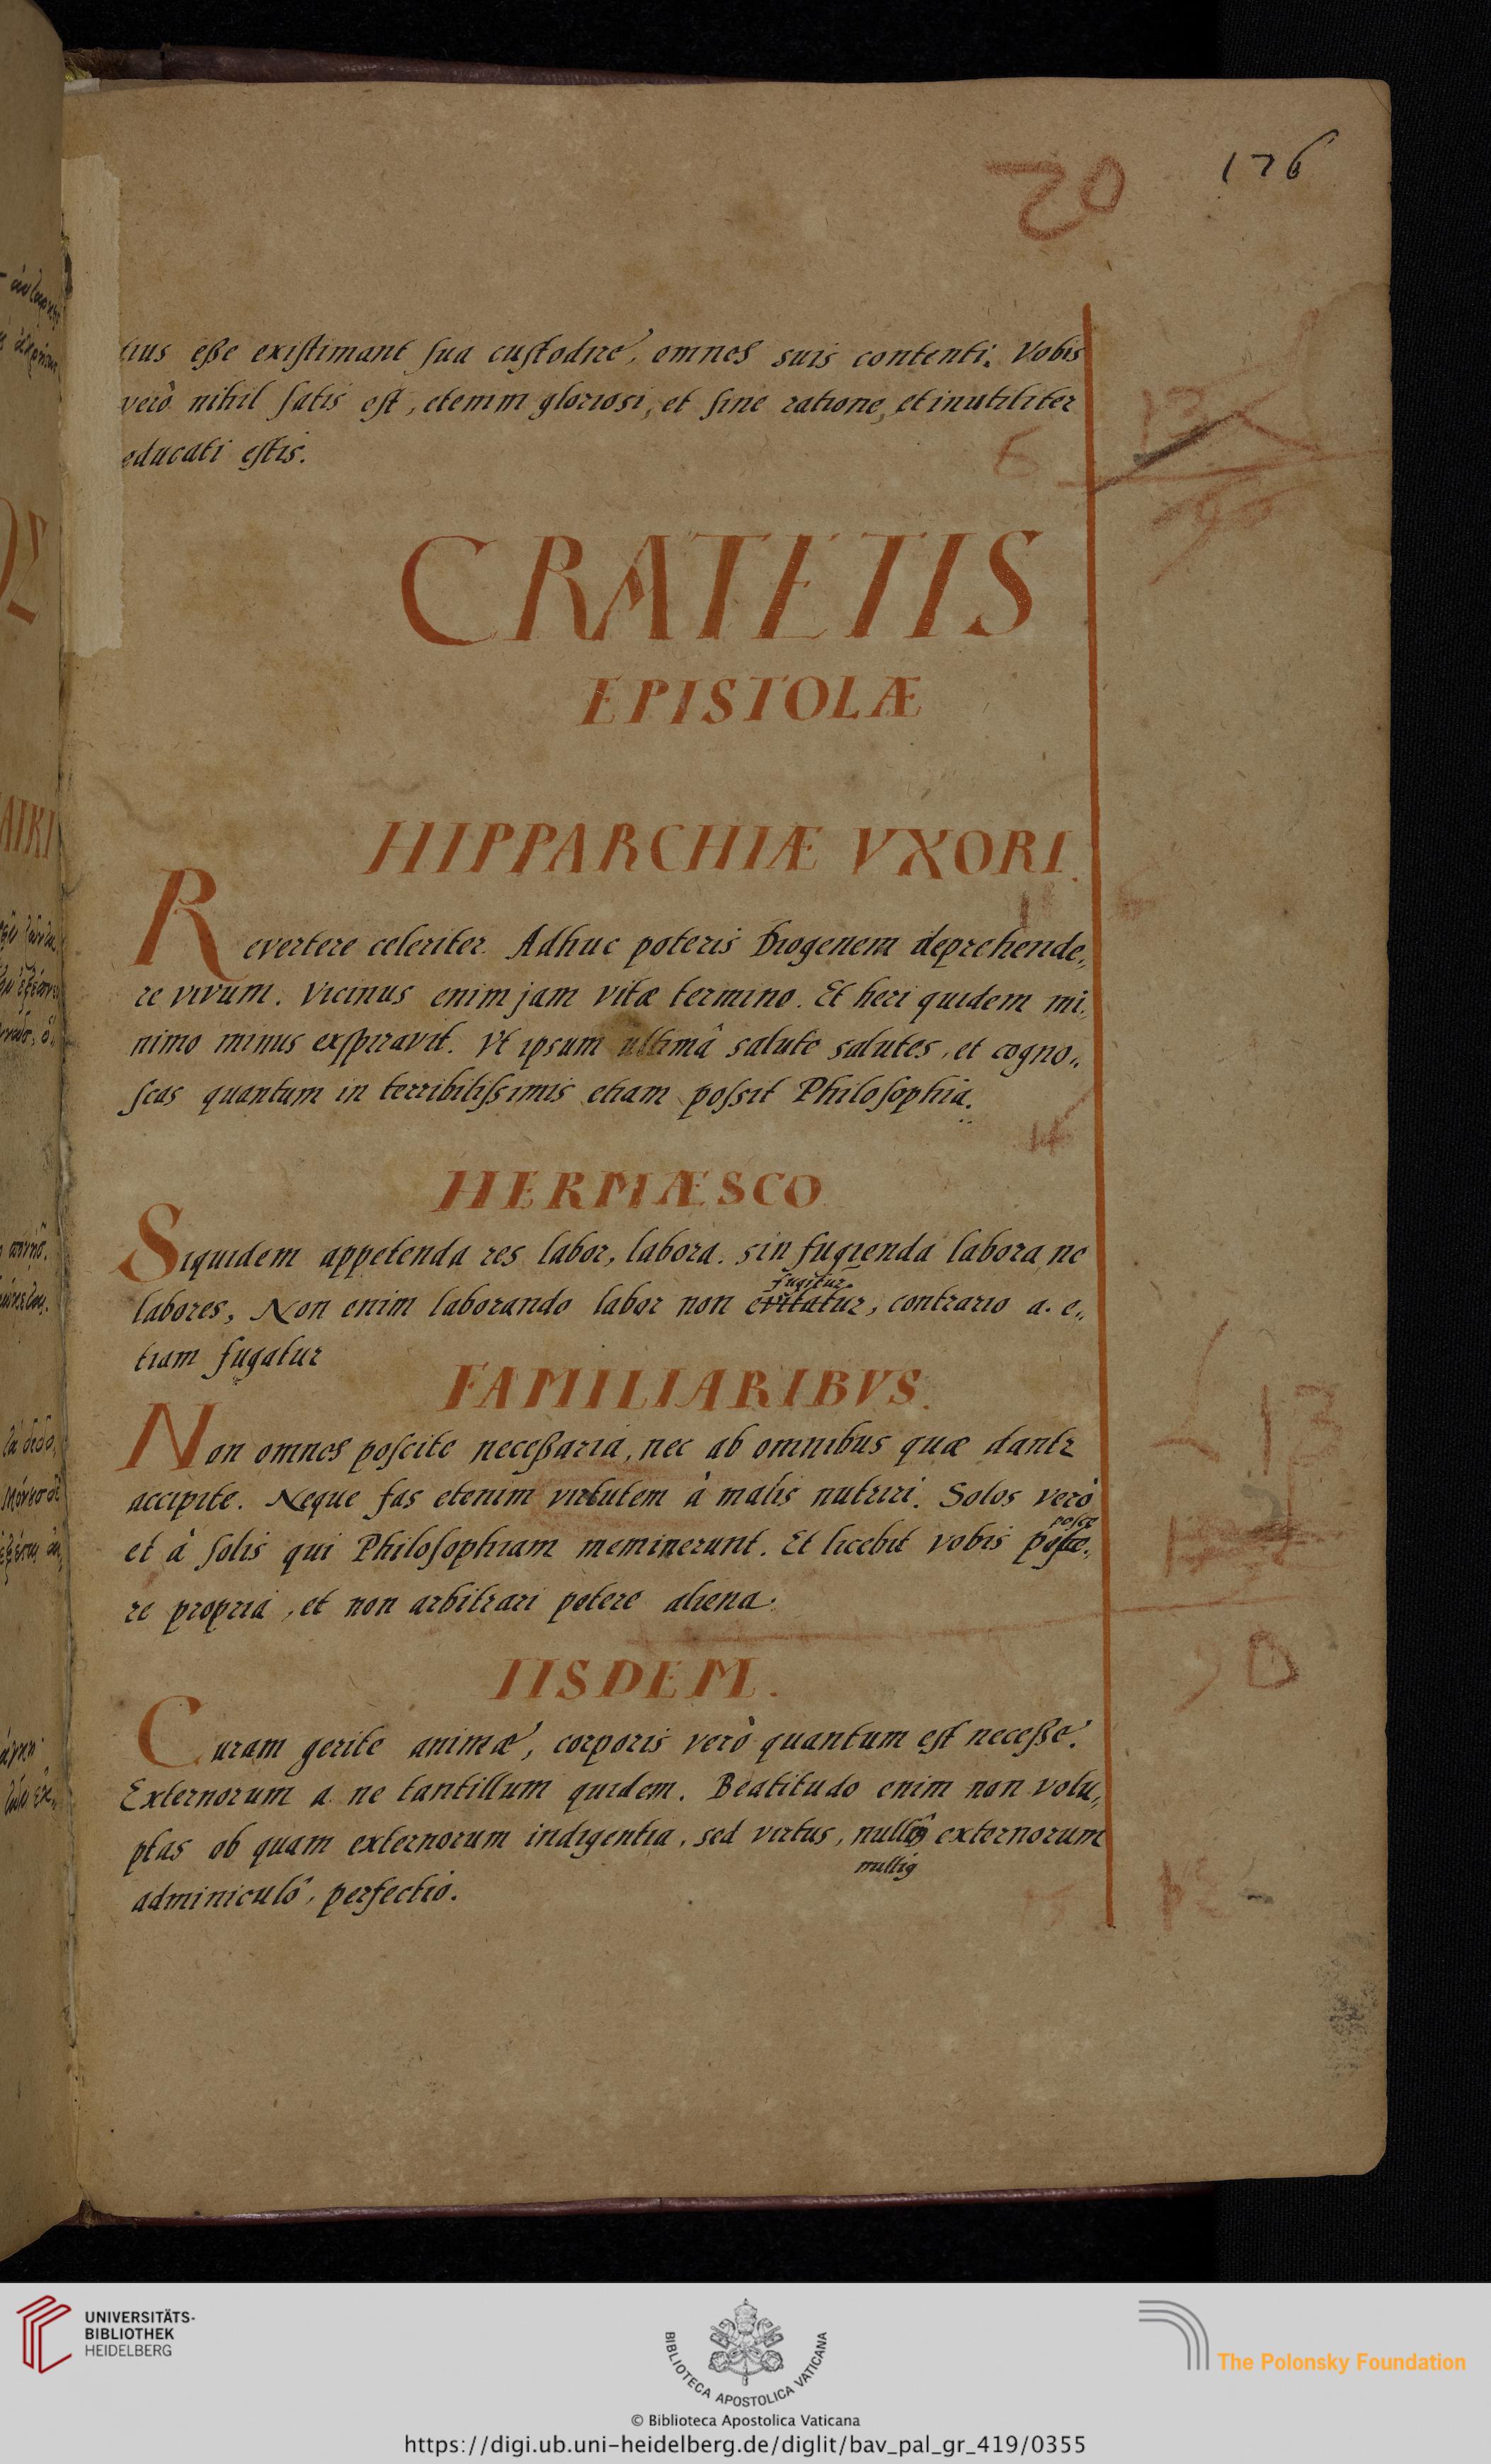 20 176
tius eße existimant sua custodire, omnes suis contenti. Vobis
verò nihil satis est, etenim gloriosi, et sine ratione, et inutiliter
educati estis.
6
CRATETIS
EPISTOLÆ
HIPPARCHIÆ VXORI.
Revertere celeriter. Adhuc poteris Diogenem deprehende„
re vivum. Vicinus enim jam vitæ termino. Et heri quidem mi„
nimo minus exspiravit. Vt ipsum ultimâ salute salutes, et cogno„
scas quantum in terribilissimis etiam possit Philosophia.
14
HERMÆSCO
Siquidem appetenda res labor, labora. sin fugienda labora, ne
fugitur.
labores, Non enim laborando labor non evitatur, contrario a. e„
tiam fugatur
FAMILIARIBVS.
Non omnes poscite neceßaria, nec ab omnibus quæ dantr
accipite. Neque fas etenim virtutem à malis nutriri. Solos verò
posce
et à solis qui Philosophiam meminerunt. Et licebit vobis posce„
re propria, et non arbitrari petere aliena.
13
90
IISDEM.
Curam gerite animæ, corporis verò quantum est neceße.
Externorum a. ne tantillum quidem. Beatitudo enim non volu„
ptas ob quam externorum indigentia, sed virtus, externorum
adminiculô, perfectio.
UNIVERSITÄTS-
BIBLIOTHEK
HEIDELBERG
BIBLIOTECA APOSTOLICA VATICANA
The Polonsky Foundation
© Biblioteca Apostolica Vaticana
https://digi.ub.uni-heidelberg.de/diglit/bav_pal_gr_419/0355